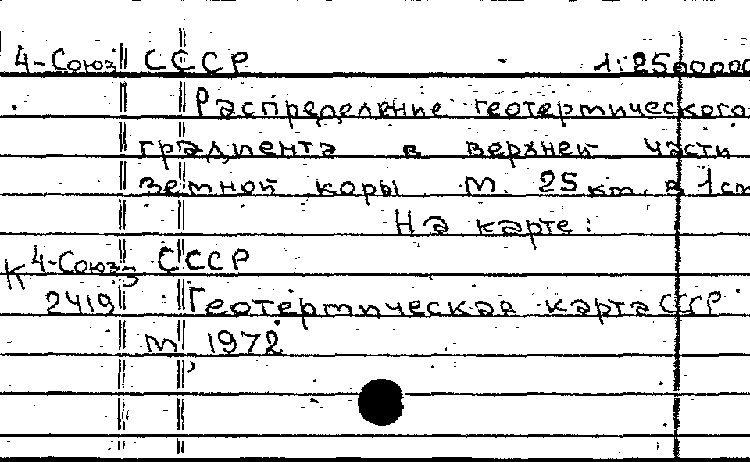 4-Союз СССР 1:2500000
Распределение геотермического
градиента в верхней части
земной коры М. 25 км. в 1 см
На карте:
К 4-Союз СССР
2419 Геотермическая карта СССР
М 1972